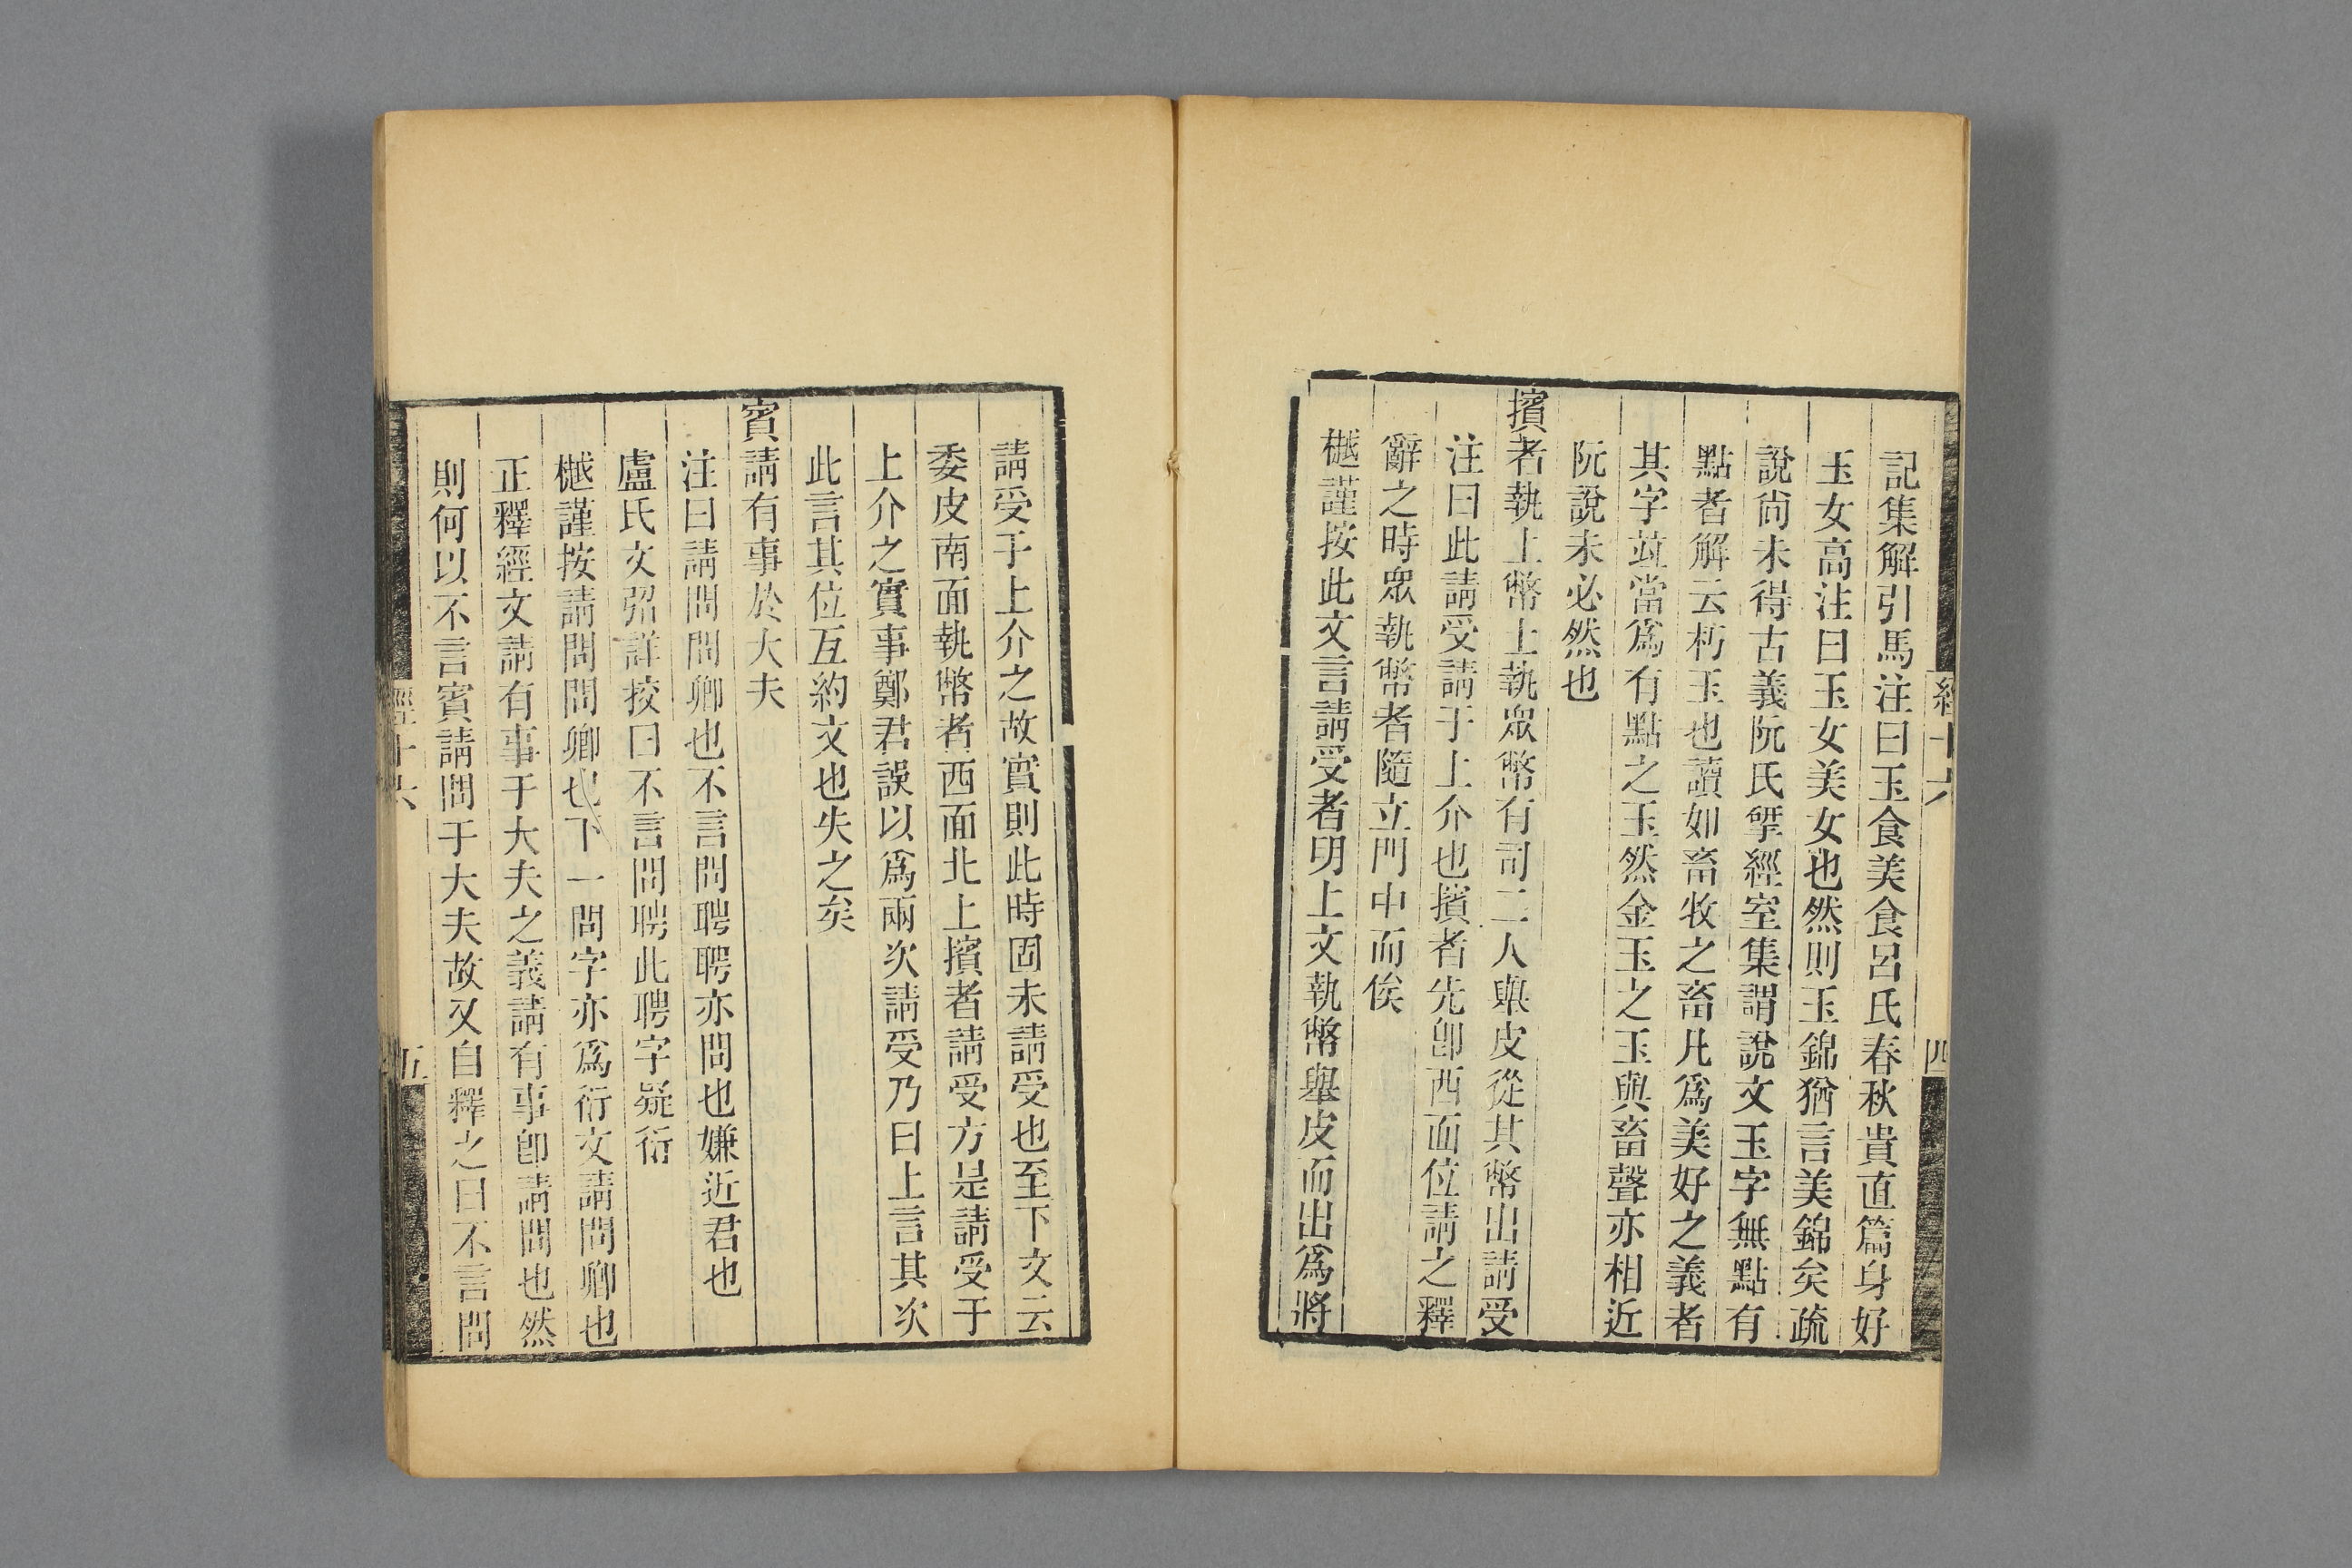 記集解引馬注曰玉食美食呂氏春秋貴直篇身好
玉女高注曰玉女美女也然則玉錦猶言美錦矣疏
說尙未得古義阮氏揅經室集謂說文玉字無點有
點者解云朽玉也讀如畜牧之畜凡爲美好之義者
其字竝當爲有點之玉然金玉之玉與畜聲亦相近
阮說未必然也
擯者執上幣士執眾幣有司二人舉皮從其幣出請受
注曰此請受請于上介也擯者先卽西面位請之釋
辭之時眾執幣者隨立門中而俟
樾謹按此文言請受者明上文執幣舉皮而出爲將
請受于上介之故實則此時固未請受也至下文云
委皮南面執幣者西面北上擯者請受方是請受于
上介之實事鄭君誤以爲兩次請受乃曰上言其次
此言其位互約文也失之矣
賓請有事於大夫
注曰請問問卿也不言問聘聘亦問也嫌近君也
盧氏文弨詳挍曰不言問聘此聘字疑衍
樾謹按請問問卿也下一問字亦爲衍文請問卿也
正釋經文請有事于大夫之義請有事卽請問也然
則何以不言賓請問于大夫故又自釋之曰不言問
經十六
四
經十六
五